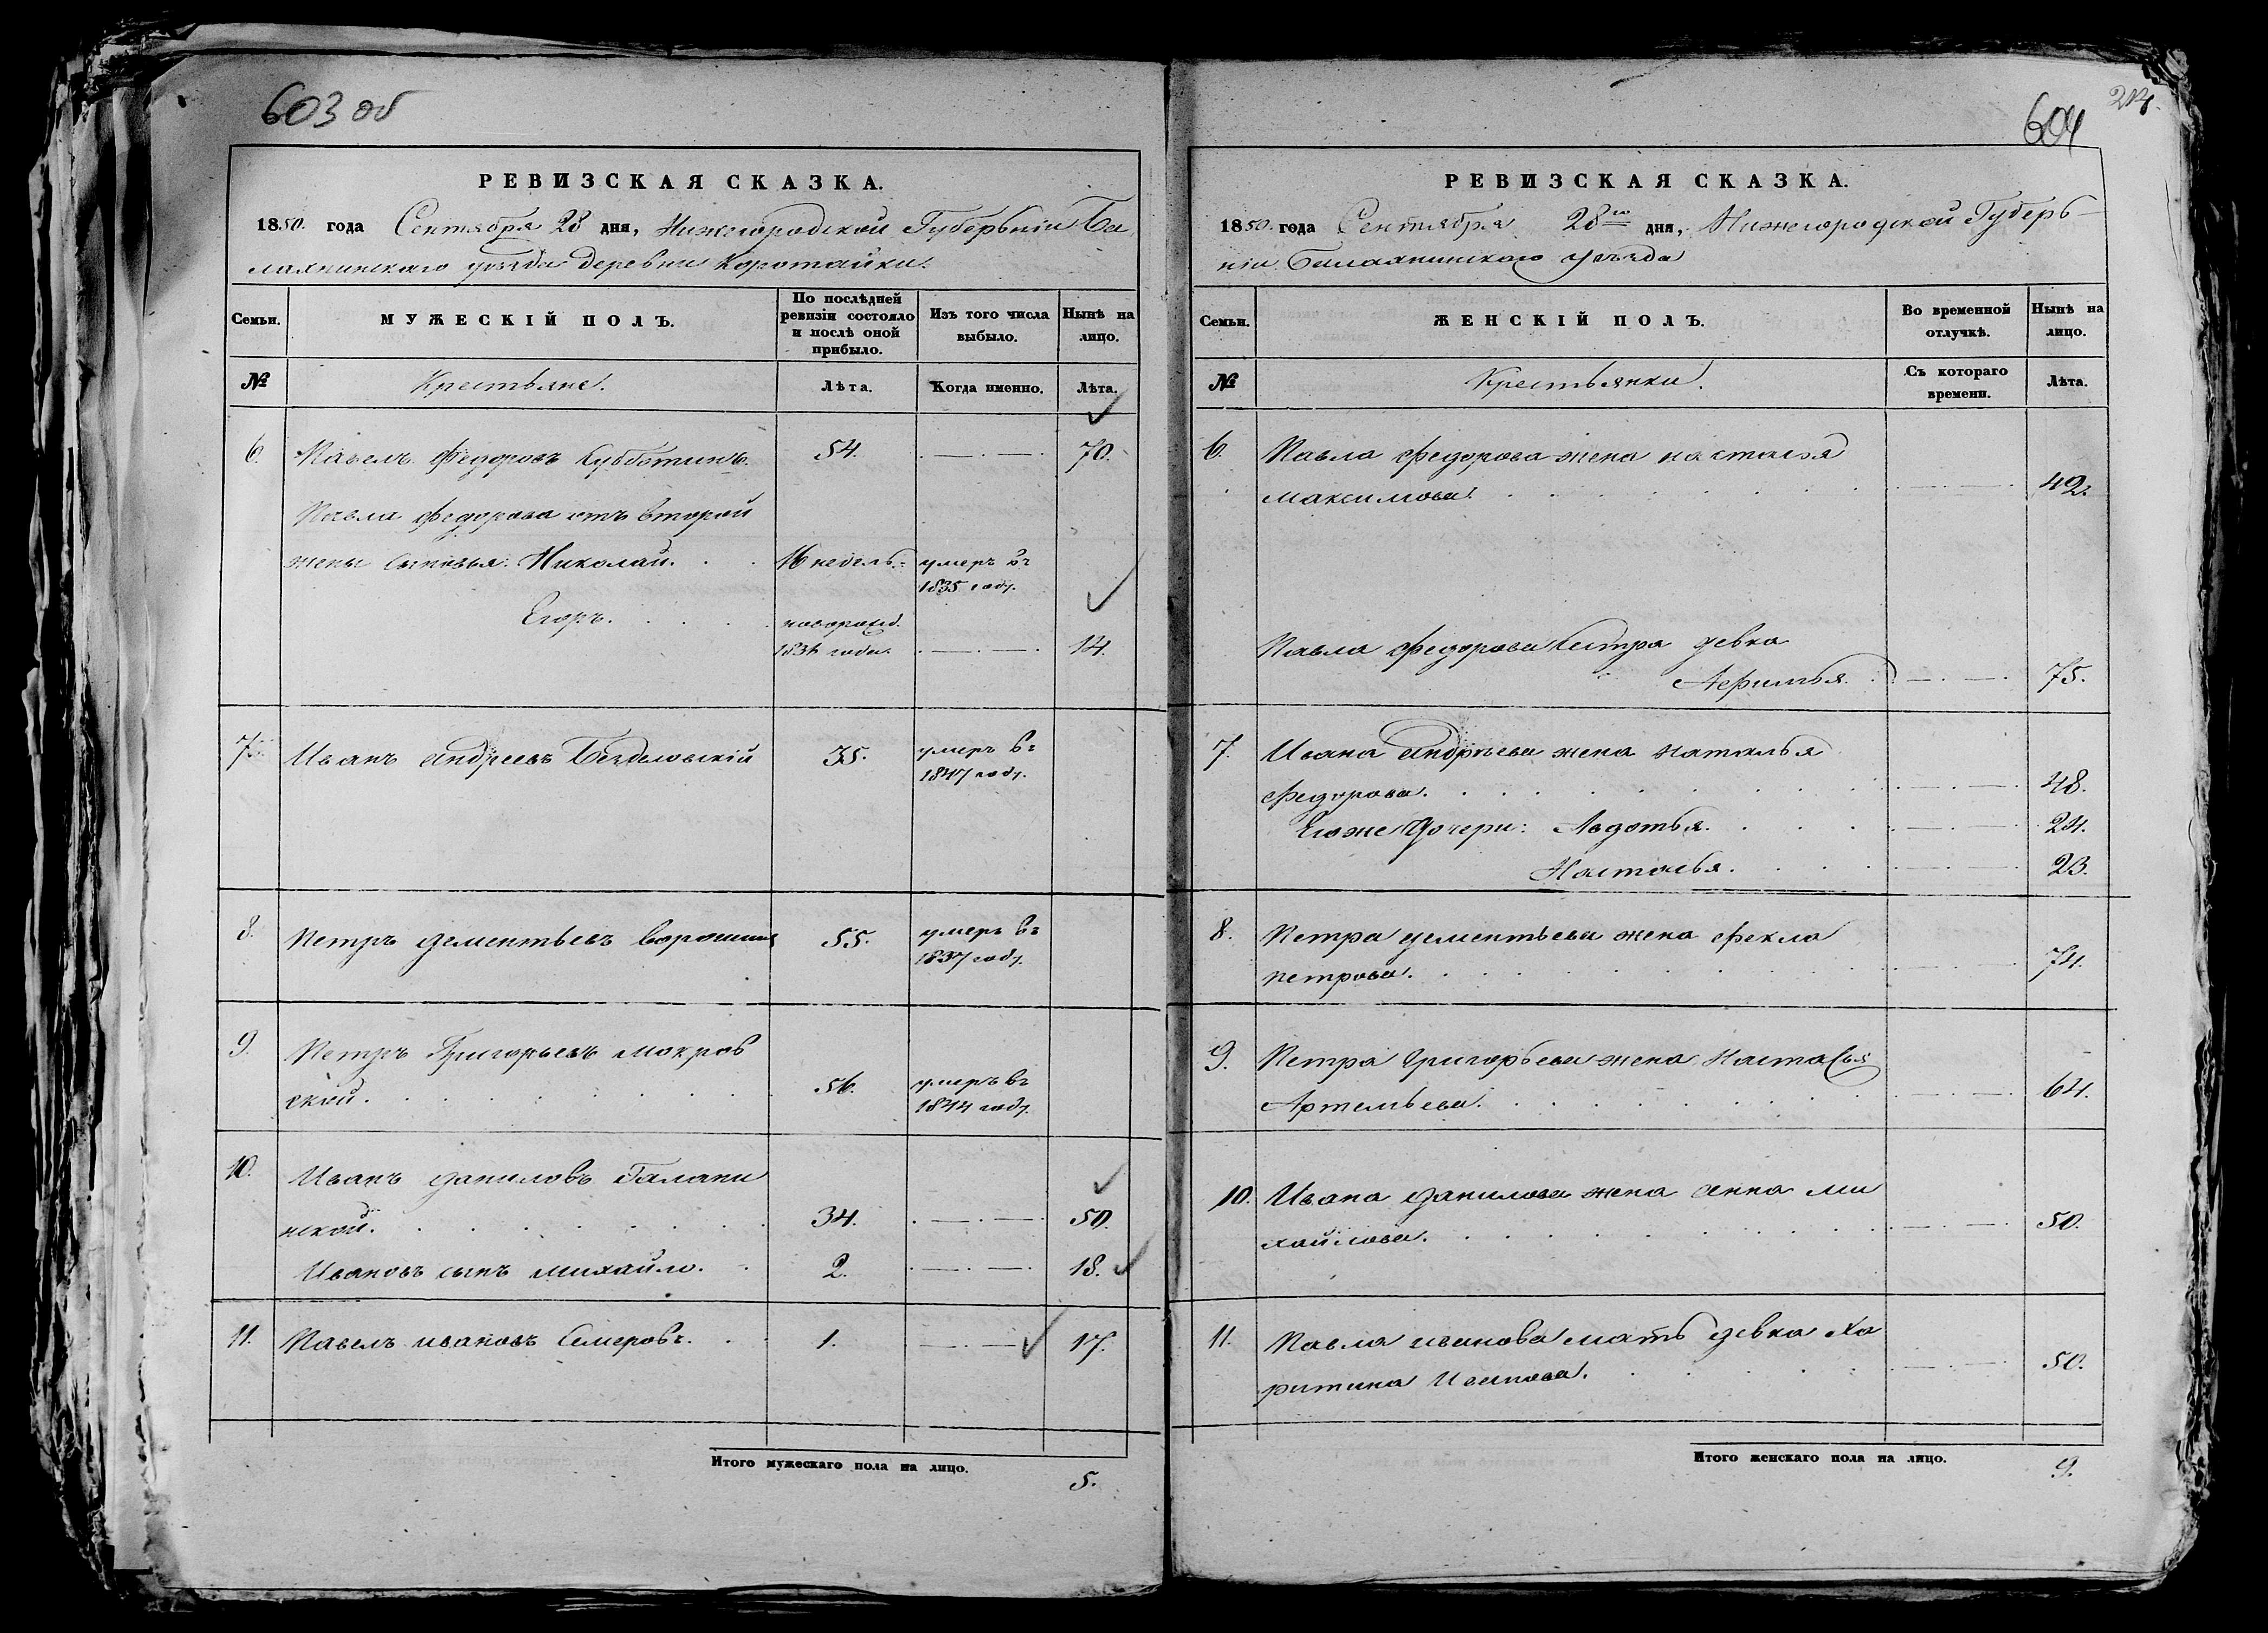 603 об
РЕВИЗСКАЯ СКАЗКА.
1850. года Сентября 28 дня, Нижегородской Губерніи Ба
лахнинскаго уезда деревни Коротайки.
Семьи.
МУЖЕСКІЙ ПОЛЪ.
По послѣдней
ревизіи состояло
и послѣ оной
прибыло.
Изъ того числа
выбыло.
Нынѣ на
лицо.
№
Крестьяне.
Лѣта.
Когда именно.
Лѣта.
6. Павелъ Федоровъ Субботинъ. 54. 70.
Павла Федорова отъ второй
жены сыновья: Николай. 16 недель. умеръ въ
1835 году.
Егоръ. новорожд.
1836 года. 14.
7. Иванъ Андреевъ 35. умеръ въ
1847 году.
8. Петръ Дементьевъ 55. умеръ въ
1837 году.
9. Петръ Григорьевъ Мокров
ской. 56. умеръ въ
1844 году.
10. Иванъ Даниловъ Галани
нской. 34. 50.
Ивановъ сынъ Михайло. 2. 18.
11. Павелъ Ивановъ Семеровъ. 1. 17.
Итого мужескаго пола на лицо.
5.
604
214.
РЕВИЗСКАЯ СКАЗКА.
1850. года Сентября 28го дня, Нижегородской Губер
ніи Балахнинского уезда
Семьи.
ЖЕНСКІЙ ПОЛЪ.
Во временной
отлучкѣ.
Нынѣ на
лицо.
№
Крестьянки.
Съ котораго
времени.
Лѣта.
6. Павла Федорова жена Настасья
Максимова. 49.
Павла Федорова сестра девка
Афимья. 75.
7. Ивана Андреева жена Наталья
Федорова. 48.
Его же дочери: Авдотья. 24.
Настасья. 23.
8. Петра Дементьева жена Фекла
Петрова. 74.
9. Петра Григорьева жена Настасья
Артемьева. 64.
10. Ивана Данилова жена Анна Ми
хайлова. 50.
11. Павла Иванова мать девка Ха
ритина Иванова. 50.
Итого женскаго пола на лицо.
9.